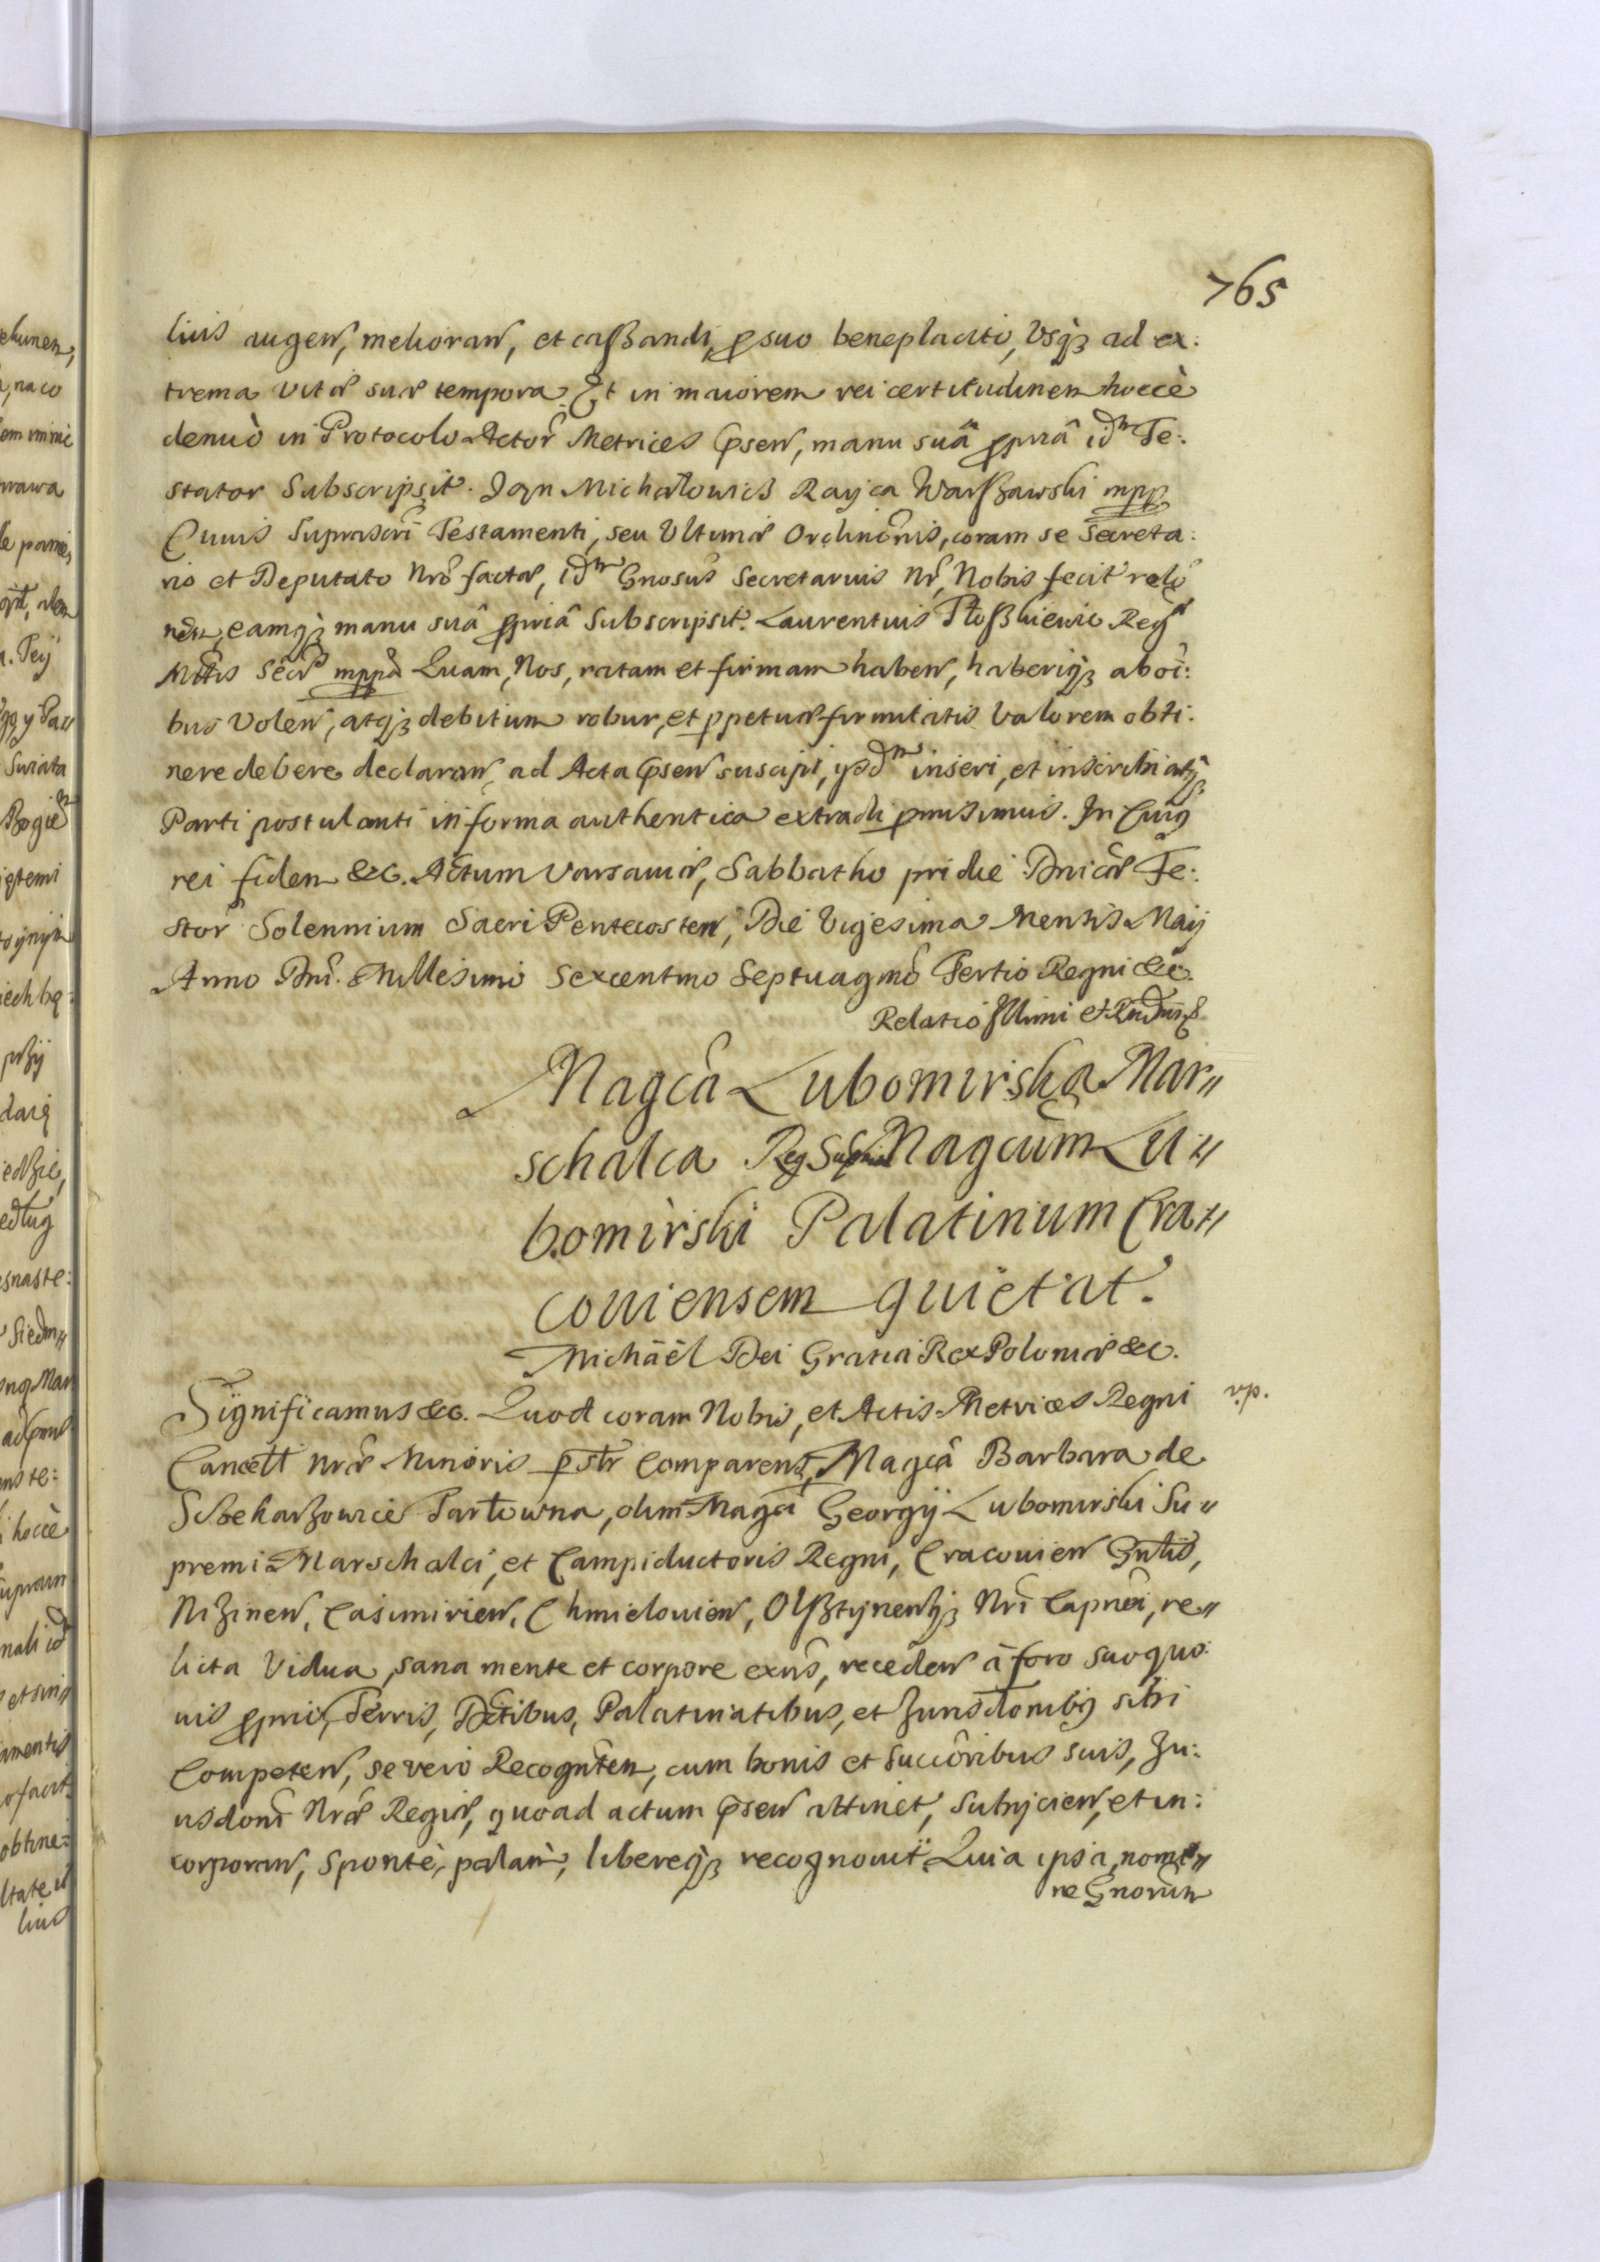 765
livis augen, melioran, et cassandi, pro suo beneplacito, Vsq3 ad ex:
trema vitæ suæ tempora. Et in maiorem rei certitudinem hocce
denuò in Protocolo Actor Metrices psen, manu suâ ppriâ idm Te:
stator Subscripsit. Jan Michałowicz Rayca Warszawski mpp
Cuius suprascri Testamenti, seu Ultimæ Ordinônis, coram se Secreta:
rio et Deputato Nrô factæ, idm Gnosus Secretarius Nr, Nobis fecit relô
nem, eamq3 manu suâ ppriâ Subscripsit. Laurentius Reg
Mttis Secr mppa Quam, Nos, ratam et firmam haben, haberiq3 ab oi:
bus Volen, atq3 debitum robur, et ppetuæ firmitatis Valorem obti:
nere debere declaran, ad Acta psen suscipi, inseri, et inscribi atq3
Parti postulanti in forma authentica extradi pmisimus. In Cuius
rei fidem &c. Actum Varsaviæ, Sabbatho pridie Dnicæ Fe:
stor Solennium Sacri Pentecosten, Die Vigesima Mensis Maij
Anno Dni. Millesimo Sexcentmo Septuagmô Tertio Regni &c.
Relatio Illmi et Rndmi
Magcâ Lubomirska Mar"
schalca Reg Magcum Lu"
bomirski Palatinum Cra"
coviensem quietat.
Michäël Dei Gratia Rex Poloniæ &c.
Significamus &c. Quod coram Nobis, et Actis Metrices Regni
vp.
Cancell Nræ Minoris pstr Comparens, Magcâ Barbara de
Szczekarzowice Tarłowna, olim Magci Georgij Lubomirski Su"
premi Marschalci, et Campiductoris Regni, Cracovien Gnlis,
Nizinen, Casimirien, Chmielovien, Olsztynenq3 Nri Capnei, re"
licta Vidua, sana mente et corpore exns, receden à foro suo quo
vis pprio, Terris, Dttibus, Palatinatibus, et Jurisdonibus sibi
Competen, se vero Recognten, cum bonis et Succôribus suis, Ju:
risdoni Nræ Regiæ, quoad actum psen attinet, subijcien, et in:
corporan, sponte, palam, libereq3 recognovit. Quia ipsa, nomi"
ne Gnorum